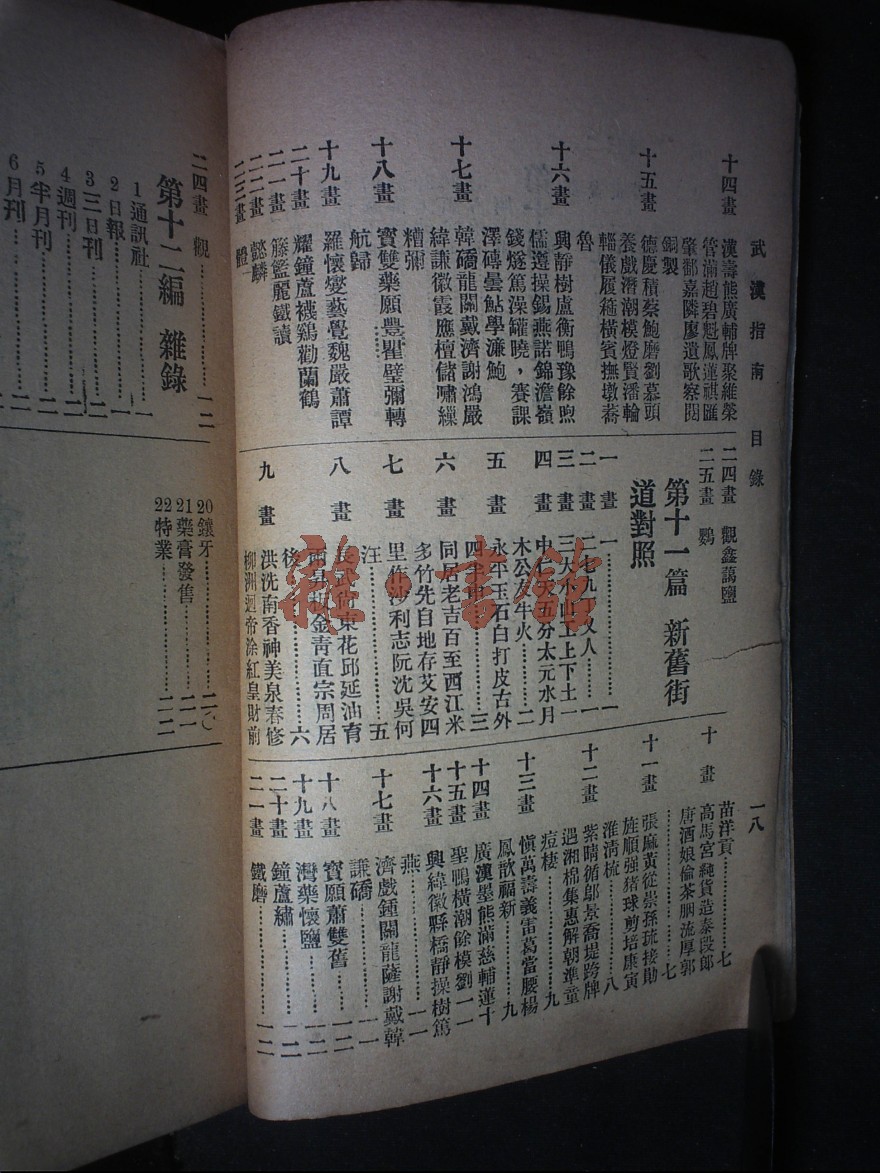 武漢指南 目錄 一八
十四畫 漢壽熊廣輔牌聚維榮
管滿趙碧魁鳳蓮祺匯
肇鄱嘉隣廖遺歌察閔
銅製
十五畫 德慶積蔡鮑磨劉慕頭
養戲潛潮模燈賢潘輪
輜儀履橫賓撫墩蕎
魯
十六畫 興靜樹盧衡鴨豫餘煦
儒遵操錫燕諾錦澹嶺
錢燧篤澡罐曉，賽課
澤磚曇鮎學濂鮑
十七畫 韓礄龍關戴濟謝鴻嚴
緯謙徽霞應檀儲嘯繅
糟彌
十八畫 寶雙藥願豐瞿璧彌轉
航歸
十九畫 羅懷燮藝覺魏嚴蕭譚
二十畫 耀鐘蘆襪鷄勸蘭鶴
二一畫 籐籃麗鐵讀
二二畫 懿麟
二三畫
二四畫 觀鑫藹鹽
二五畫 鸚
第十一篇 新舊街
道對照
一畫 一 一
二畫 二七九八又人 一
三畫 三大小山工上下土一
四畫 中仁天五分太元水月
木公方牛火 二
五畫 永平玉石白打皮古外
四半申 三
六畫 同居老吉百至西江米
多竹先自地存艾安四
七畫 里作沙利志阮沈吳何
汪 五
八畫 長武附東花邱延油育
兩昇板金靑直宗周居
後 六
九畫 洪洗南香神美泉春修
柳洲迴帝涂紅皇財前
苗洋貢 七
十畫 高馬宮純貨造秦段郎
唐酒娘偷茶胭流厚郭
七
十一畫 張麻黃從崇孫琉接勛
旌順强猪球剪培康寅
淮淸梳 八
十二畫 紫晴循鄔景喬堤跨牌
遇湘棉集惠解朝準童
痘棲 九
十三畫 愼萬壽義雷葛當腰楊
鳳歆福新 九
十四畫 廣漢墨熊滿慈輔蓮十
十五畫 聖鴨橫潮餘模劉一一
十六畫 興緯徽縣橋靜操樹篤
燕 一一
十七畫 濟戲鍾關龍薩謝戴韓
謙礄 一一
十八畫 寶願蕭雙舊 一二
十九畫 灣藥懷鹽 一二
二十畫 鐘蘆繡 一二
二一畫 鐵磨 一二
二四畫 觀 一二
第十二編 雜錄
1通訊社 一
2日報 一
3三日刊 二
4週刊 二
5半月刊
6月刊
20鑲牙 二〇
21藥膏發售 二一
22特業 二二
雜·書館